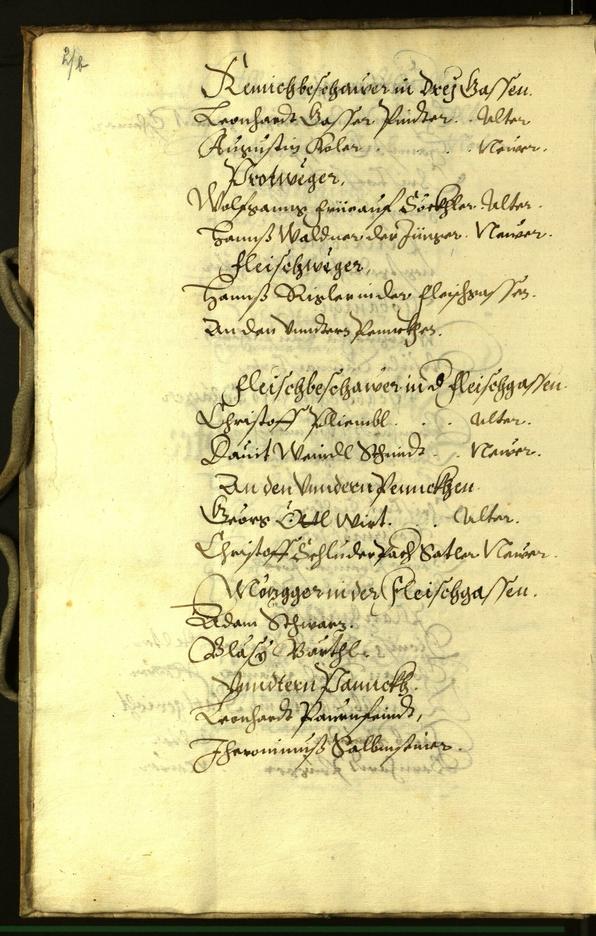 2/b
Kemichbeschawer in Dreÿ Gassen.
Leonhardt Gasser Pindter . . Alter
Augustin Koler . . . Newer.
Protweger,
Wolfganng Gröckhler Alter.
Hannß Waldner der Jünger. Newer.
Fleischweger,
Hannß Rigler in der Fleischgassen.
An den Unndtern Pennckhen.
Fleischbeschawer in d Fleischgassen.
Christoff . . . Alter.
Dauit Weindl Schmidt . . Newer.
An den Unndern Pennckhen
Georg Öttl Wirt. . . Alter.
Christoff Schluderpach Satler Newer.
Mönggger in der Fleischgassen.
Adam Schwarz.
Blasÿ Bärthl.
Unndtern Pannckh.
Leonhardt Paurnfeindt,
Jheronimuß